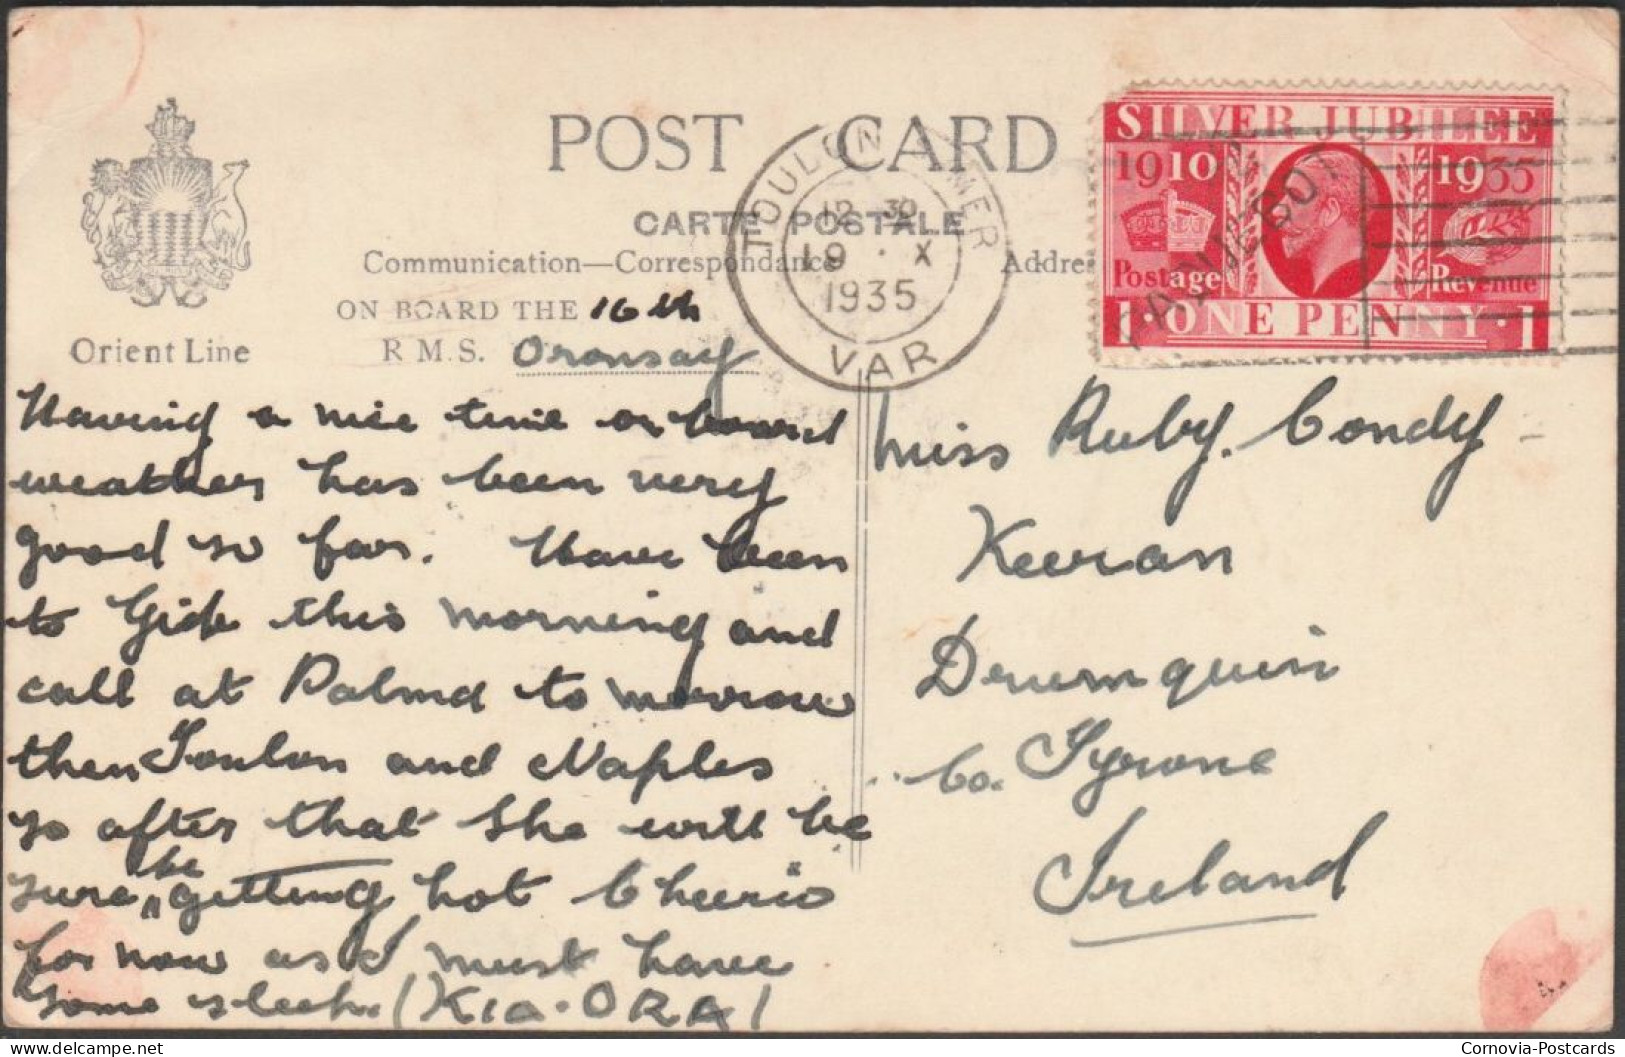 POST CARD
CARTE POSTALE
Communication—Correspondance
Addre
ON BOARD THE 16th
R M.S. Oronsay
Orient Line
TOULON MER
12 30
19 · X
1935
VAR
SILVER JUBILEE
1910 1935
Postage Revenue
1 · ONE PENNY · 1
PAQUEBOT
Having a nice time on board
weather has been very
good so far. Have been
to Gib this morning and
call at Palma to morrow
then Toulon and Naples
so after that she will be
sure be getting hot Cheerio
for now as I must have
some sleep. (KIA-ORA)
Miss Ruby. Condy
Keeran
Drumquin
Co. Tyrone
Ireland
Cornovia-Postcards